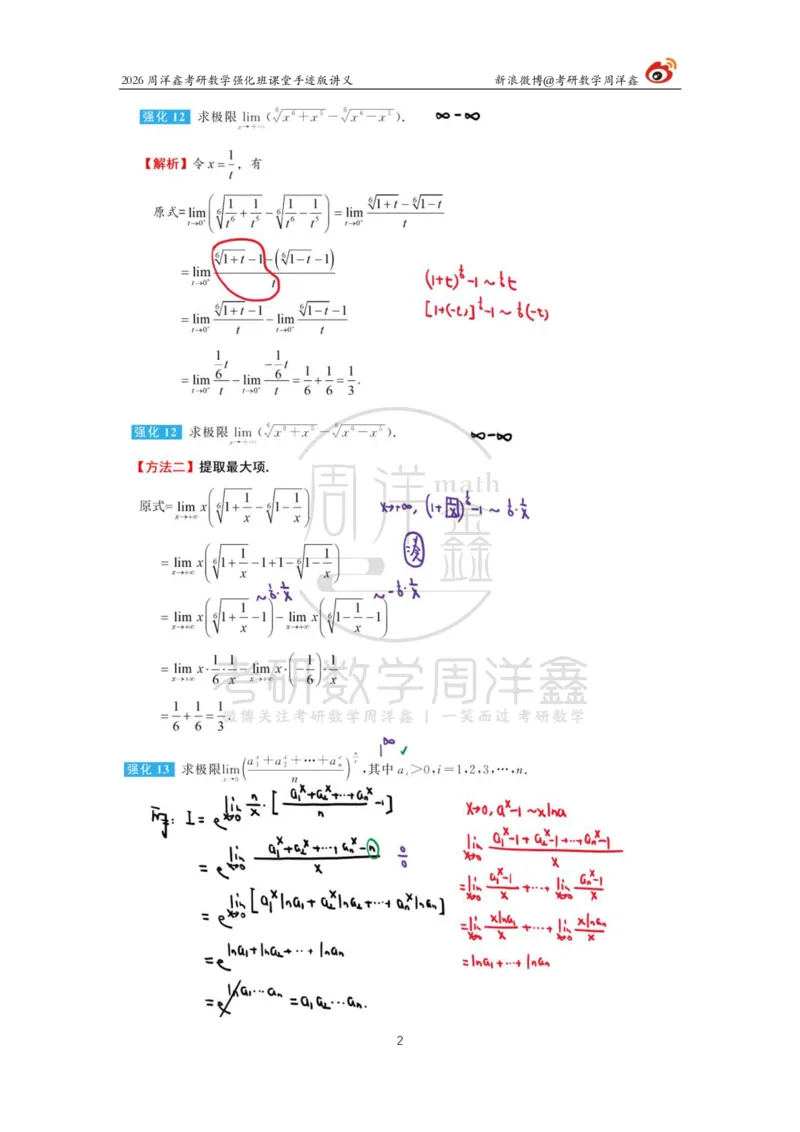 2026 周洋鑫考研数学强化班课堂手迹版讲义 新浪微博@考研数学周洋鑫
强化 12 求极限 lim_{x→+∞} (⁶√(x⁶+x⁵) − ⁶√(x⁶−x⁵)). ∞-∞
【解析】令 x = 1/t , 有
原式= lim_{t→0⁺} (⁶√(1/t⁶ + 1/t⁵) − ⁶√(1/t⁶ − 1/t⁵)) = lim_{t→0⁺} (⁶√(1+t) − ⁶√(1−t))/t
= lim_{t→0⁺} (⁶√(1+t) −1 − (⁶√(1−t) −1))/t
(1+t)^{1/6} -1 ~ 1/6 t
= lim_{t→0⁺} (⁶√(1+t) −1)/t − lim_{t→0⁺} (⁶√(1−t) −1)/t
[1+(-t)]^{1/6} -1 ~ 1/6 (-t)
= lim_{t→0⁺} (1/6 t)/t − lim_{t→0⁺} (−1/6 t)/t = 1/6 + 1/6 = 1/3 .
强化 12 求极限 lim_{x→+∞} (⁶√(x⁶+x⁵) − ⁶√(x⁶−x⁵)). ∞-∞
【方法二】提取最大项.
原式= lim_{x→+∞} x(⁶√(1+1/x) − ⁶√(1−1/x))
x→+∞, (1+1/x)^{1/6} -1 ~ 1/6·1/x
= lim_{x→+∞} x(⁶√(1+1/x) −1+1− ⁶√(1−1/x))
凑
~ 1/6·1/x ~ -1/6·1/x
= lim_{x→+∞} x(⁶√(1+1/x) −1) − lim_{x→+∞} x(⁶√(1−1/x) −1)
= lim_{x→+∞} x·1/6·1/x − lim_{x→+∞} x·(−1/6)·1/x
= 1/6 + 1/6 = 1/3 .
周洋鑫 math
考研数学周洋鑫
微博关注考研数学周洋鑫 | 一笑而过 考研数学
1^∞ ✓
强化 13 求极限 lim_{x→0} ((a₁ˣ+a₂ˣ+⋯+aₙˣ)/n)^{n/x} ,其中 aᵢ>0,i=1,2,3,⋯,n.
解: I = e^{lim_{x→0} n/x·[(a₁ˣ+a₂ˣ+⋯+aₙˣ)/n -1]}
= e^{lim_{x→0} (a₁ˣ+a₂ˣ+⋯+aₙˣ-n)/x} 0/0
= e^{lim_{x→0} [a₁ˣlna₁+a₂ˣlna₂+⋯+aₙˣlnaₙ]}
= e^{lna₁+lna₂+⋯+lnaₙ}
= e^{lna₁⋯aₙ} = a₁a₂⋯aₙ.
x→0, aˣ-1 ~ xlna
lim_{x→0} (a₁ˣ-1+a₂ˣ-1+⋯+aₙˣ-1)/x
= lim_{x→0} (a₁ˣ-1)/x +⋯+ lim_{x→0} (aₙˣ-1)/x
= lim_{x→0} xlna₁/x +⋯+ lim_{x→0} xlnaₙ/x
= lna₁+⋯+lnaₙ
2